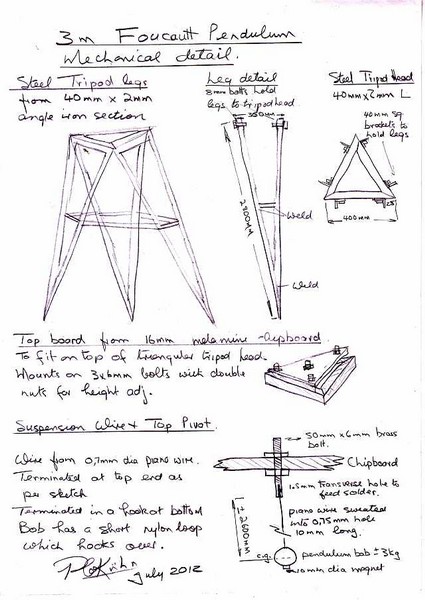 3m Foucault Pendulum
Mechanical detail.
Steel Tripod legs
from 40mm x 2mm
angle iron section
Leg detail
8mm bolts hold
legs to tripod head
350mm
2900mm
Weld
Weld
Steel Tripod Head
40mm x 2mm L
40mm sq
brackets to
hold legs
400mm
Top board from 16mm melamine chipboard
To fit on top of triangular tripod head.
Mounts on 3x6mm bolts with double
nuts for height adj.
Suspension Wire & Top Pivot.
Wire from 0,7mm dia piano wire.
Terminated at top end as
per sketch
Terminated in a hook at bottom
Bob has a short nylon loop
which hooks over.
July 2012
50mm x 6mm brass
bolt.
Chipboard
1.5mm transverse hole to
feed solder.
piano wire sweated
into 0,75mm hole
10mm long.
c.g.
pendulum bob ± 3kg
10mm dia magnet